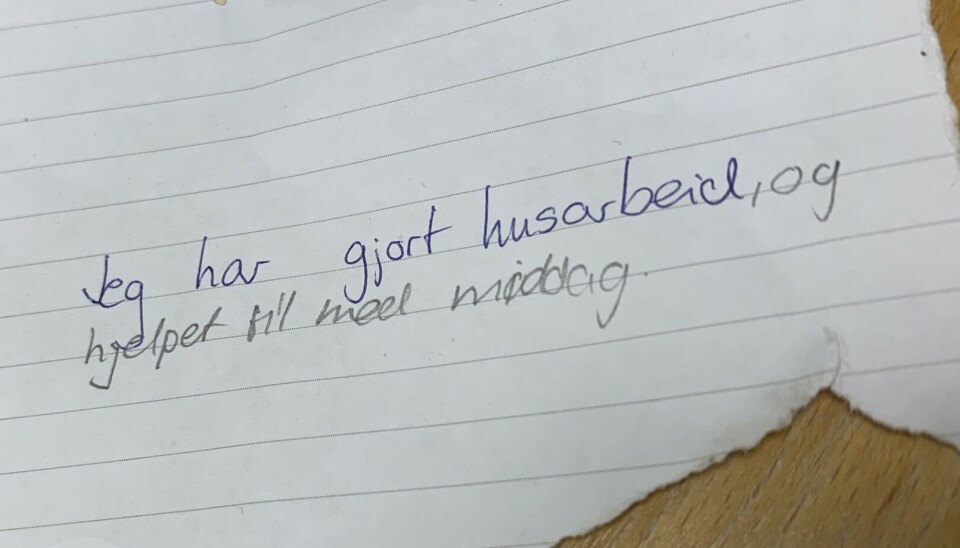 Jeg har gjort husarbeid, og
hjelpet til med middag.